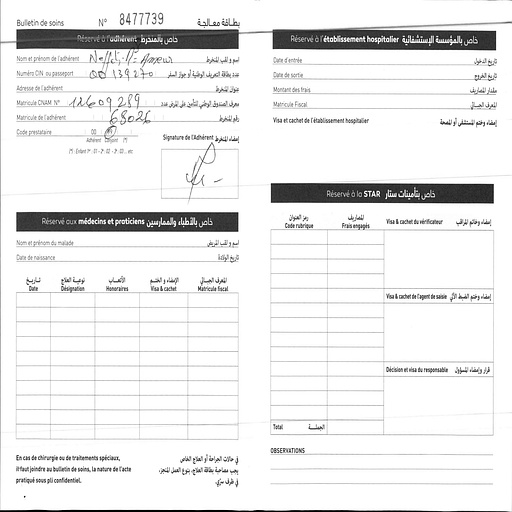 Bulletin de soins N° 8477739 بطاقة معالجة
Réservé à l'adhérent خاص بالمنخرط
Nom et prénom de l'adhérent اسم و لقب المنخرط
Numéro CIN ou passeport 00139270 عدد بطاقة التعريف الوطنية أو جواز السفر
Adresse de l'adhérent عنوان المنخرط
Matricule CNAM N° 11609289 معرف الصندوق الوطني للتأمين على المرض عدد
Matricule de l'adhérent 68026 رقم المنخرط
Code prestataire 00
Adhérent Conjoint (*)
(*) : Enfant 1er : 01 - 2è : 02 - 3è : 03 .. etc
Signature de l'Adhérent إمضاء المنخرط
Réservé aux médecins et praticiens خاص بالأطباء والممارسين
Nom et prénom du malade اسم و لقب المريض
Date de naissance تاريخ الولادة
تاريخ نوعية العلاج الأتعاب الإمضاء و الختم المعرف الجبائي
Date Désignation Honoraires Visa & cachet Matricule fiscal
En cas de chirurgie ou de traitements spéciaux,
il faut joindre au bulletin de soins, la nature de l'acte
pratiqué sous pli confidentiel.
في حالات الجراحة أو العلاج الخاص
يجب مصاحبة بطاقة العلاج، بنوع العمل المنجز،
في ظرف سري.
Réservé à l'établissement hospitalier خاص بالمؤسسة الإستشفائية
Date d'entrée تاريخ الدخول
Date de sortie تاريخ الخروج
Montant des frais مقدار المصاريف
Matricule Fiscal المعرف الجبائي
Visa et cachet de l'établissement hospitalier إمضاء وختم المستشفى أو المصحة
Réservé à la STAR خاص بتأمينات ستار
رمز العنوان المصاريف
Code rubrique Frais engagés
Visa & cachet du vérificateur إمضاء وخاتم المراقب
Visa & cachet de l'agent de saisie إمضاء وختم الضبط الآلي
Décision et visa du responsable قرار وإمضاء المسؤول
Total الجملة
OBSERVATIONS